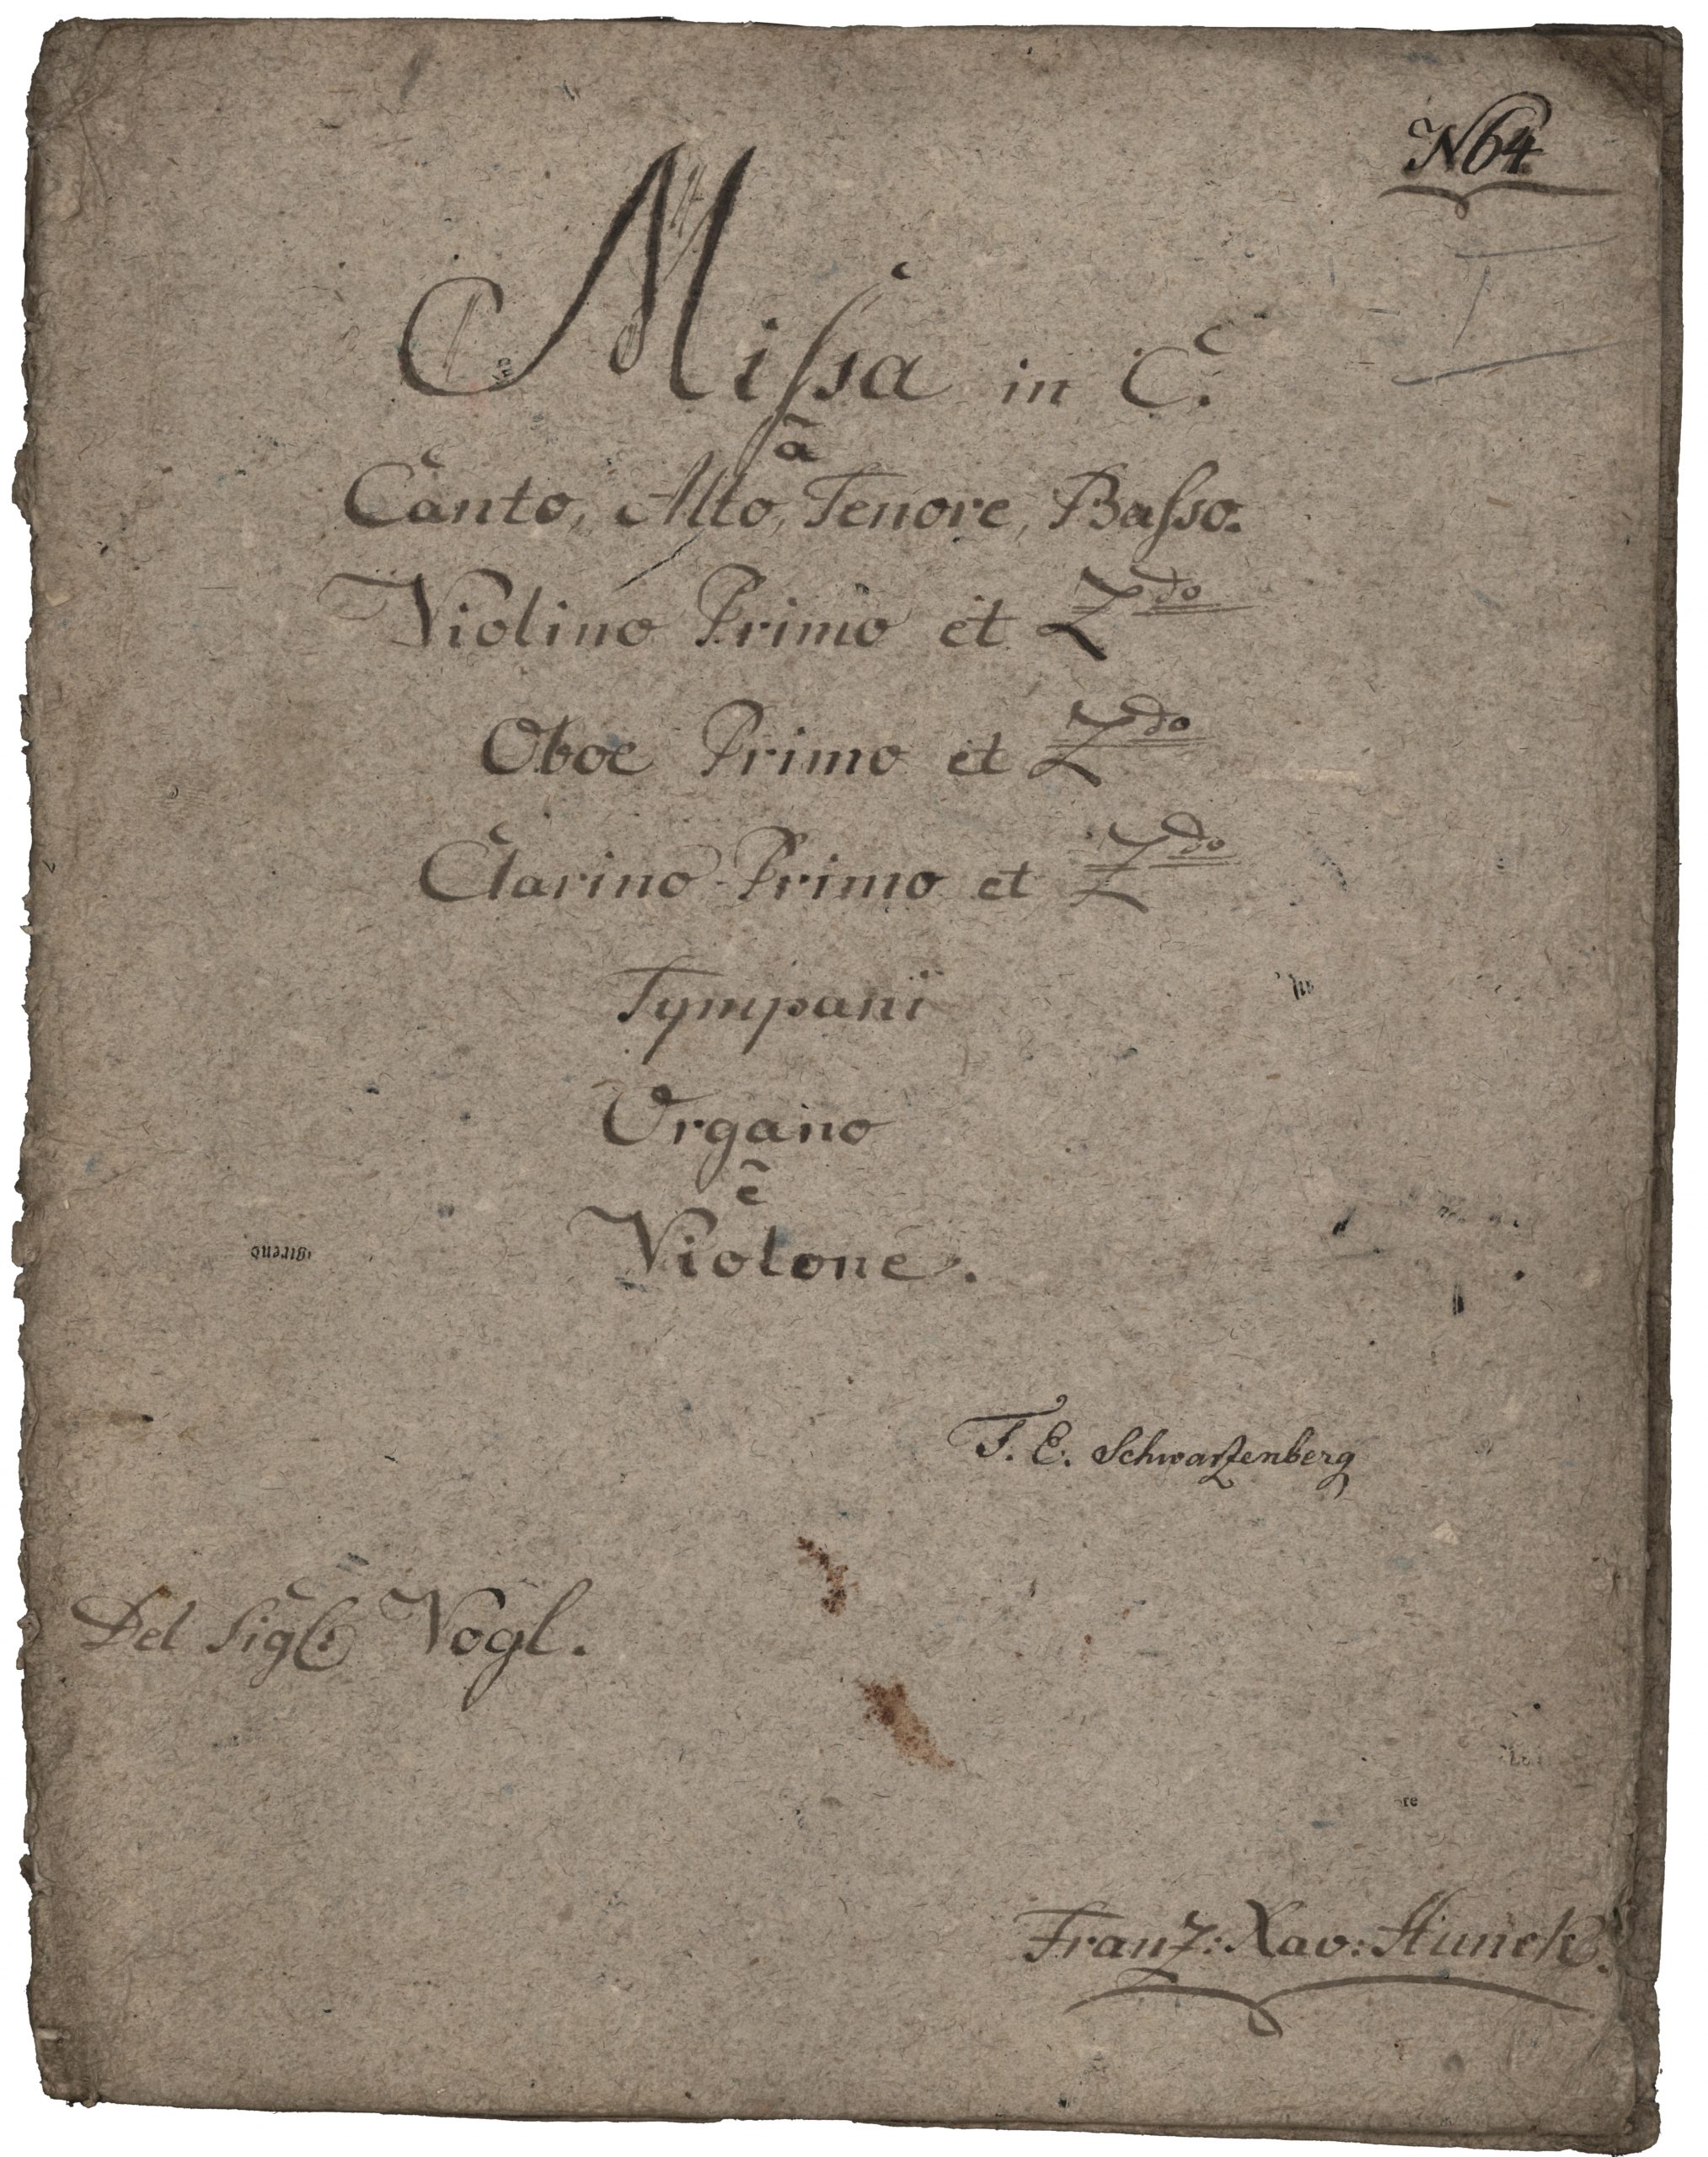 N 64
Missa in C.
à
Canto, Alto, Tenore, Basso.
Violino Primo et 2do
Oboe Primo et 2do
Clarino Primo et 2do
Tympani
Organo
e
Violone.
T. E. Schwartzenberg
Del Sigl: Vogl.
Franz: Xav:
re